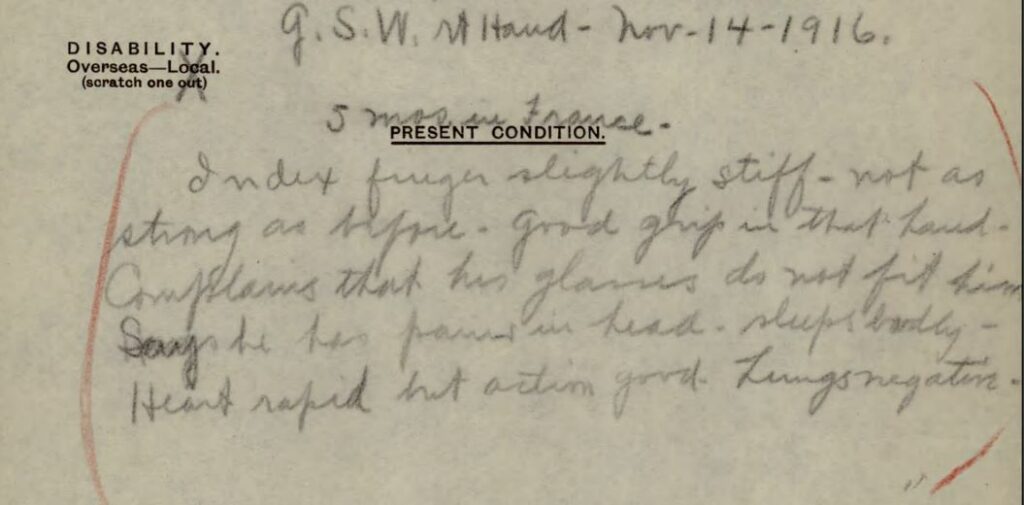 G. S. W. rt Hand - Nov - 14 - 1916.
DISABILITY.
Overseas—Local.
(scratch one out)
5 mos in France -
PRESENT CONDITION.
Index finger slightly stiff - not as
strong as before - Good grip in that hand -
Complains that his glasses do not fit him
Says he has pains in head - sleeps badly -
Heart rapid but action good - Lungs negative -